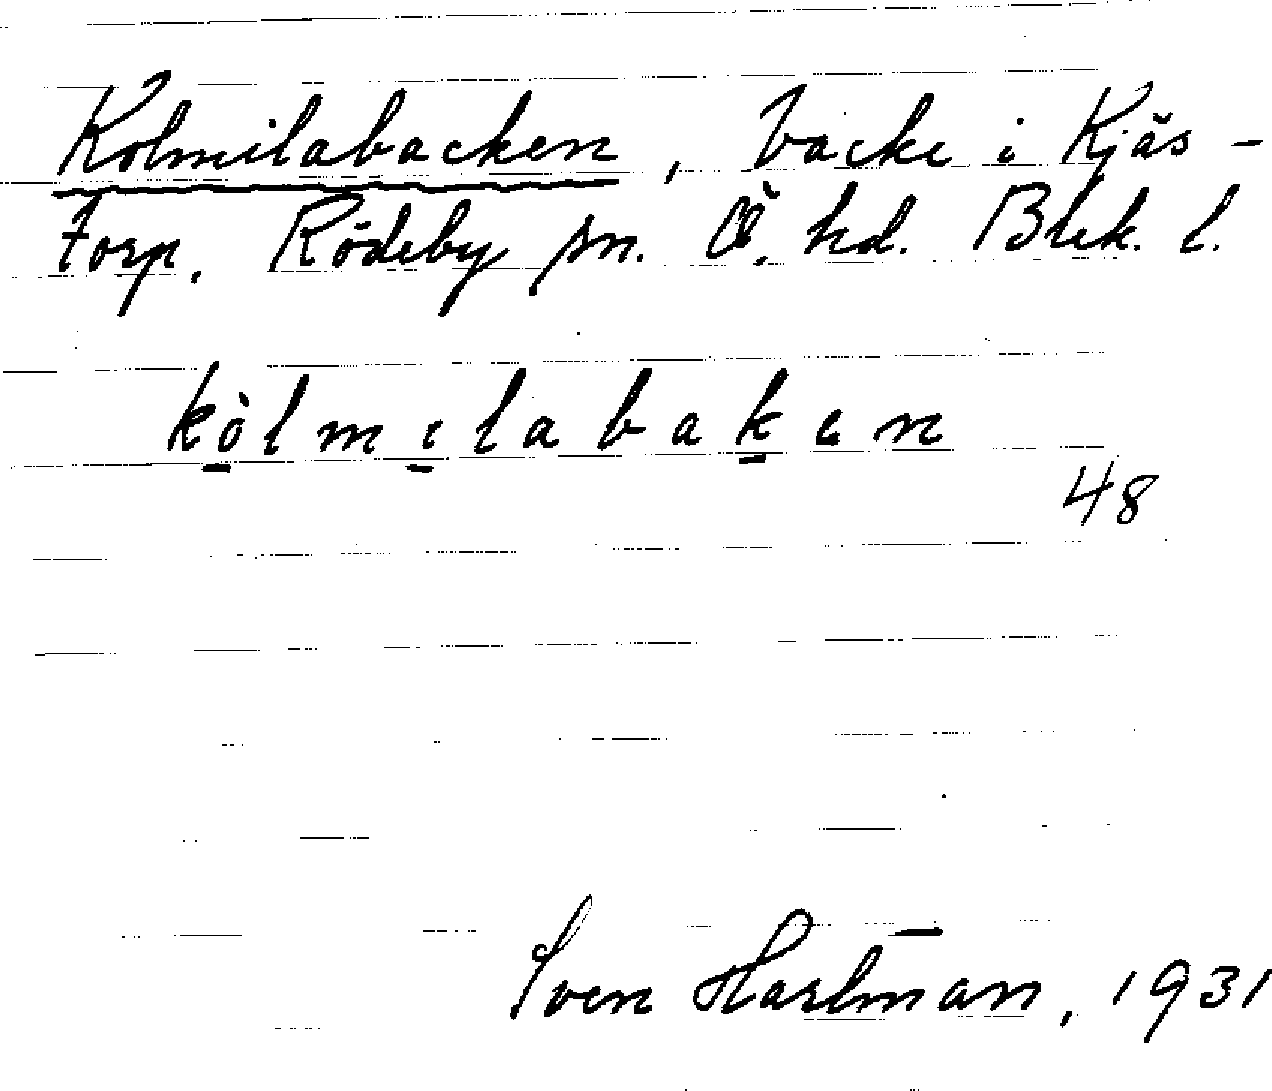 Kolmilabacken, backe i Kjäs-
torp. Rödeby sn. Ö. hd. Blek. l.
kòlmılabakɛn
48
Sven Hartman, 1931